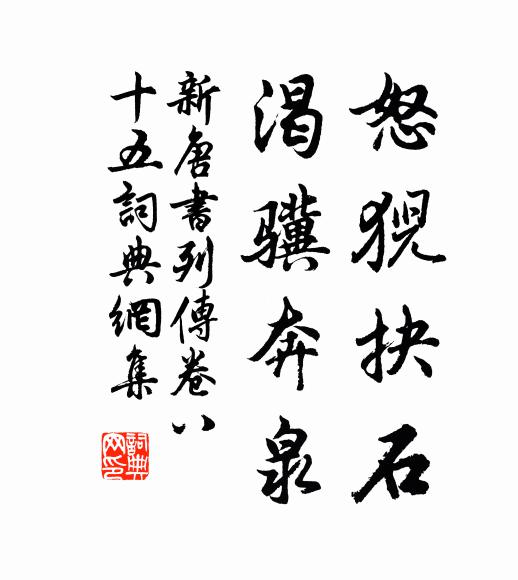 怒猊抉石
渴骥奔泉
新唐書列傳卷八
十五詞典網集
詞典網印